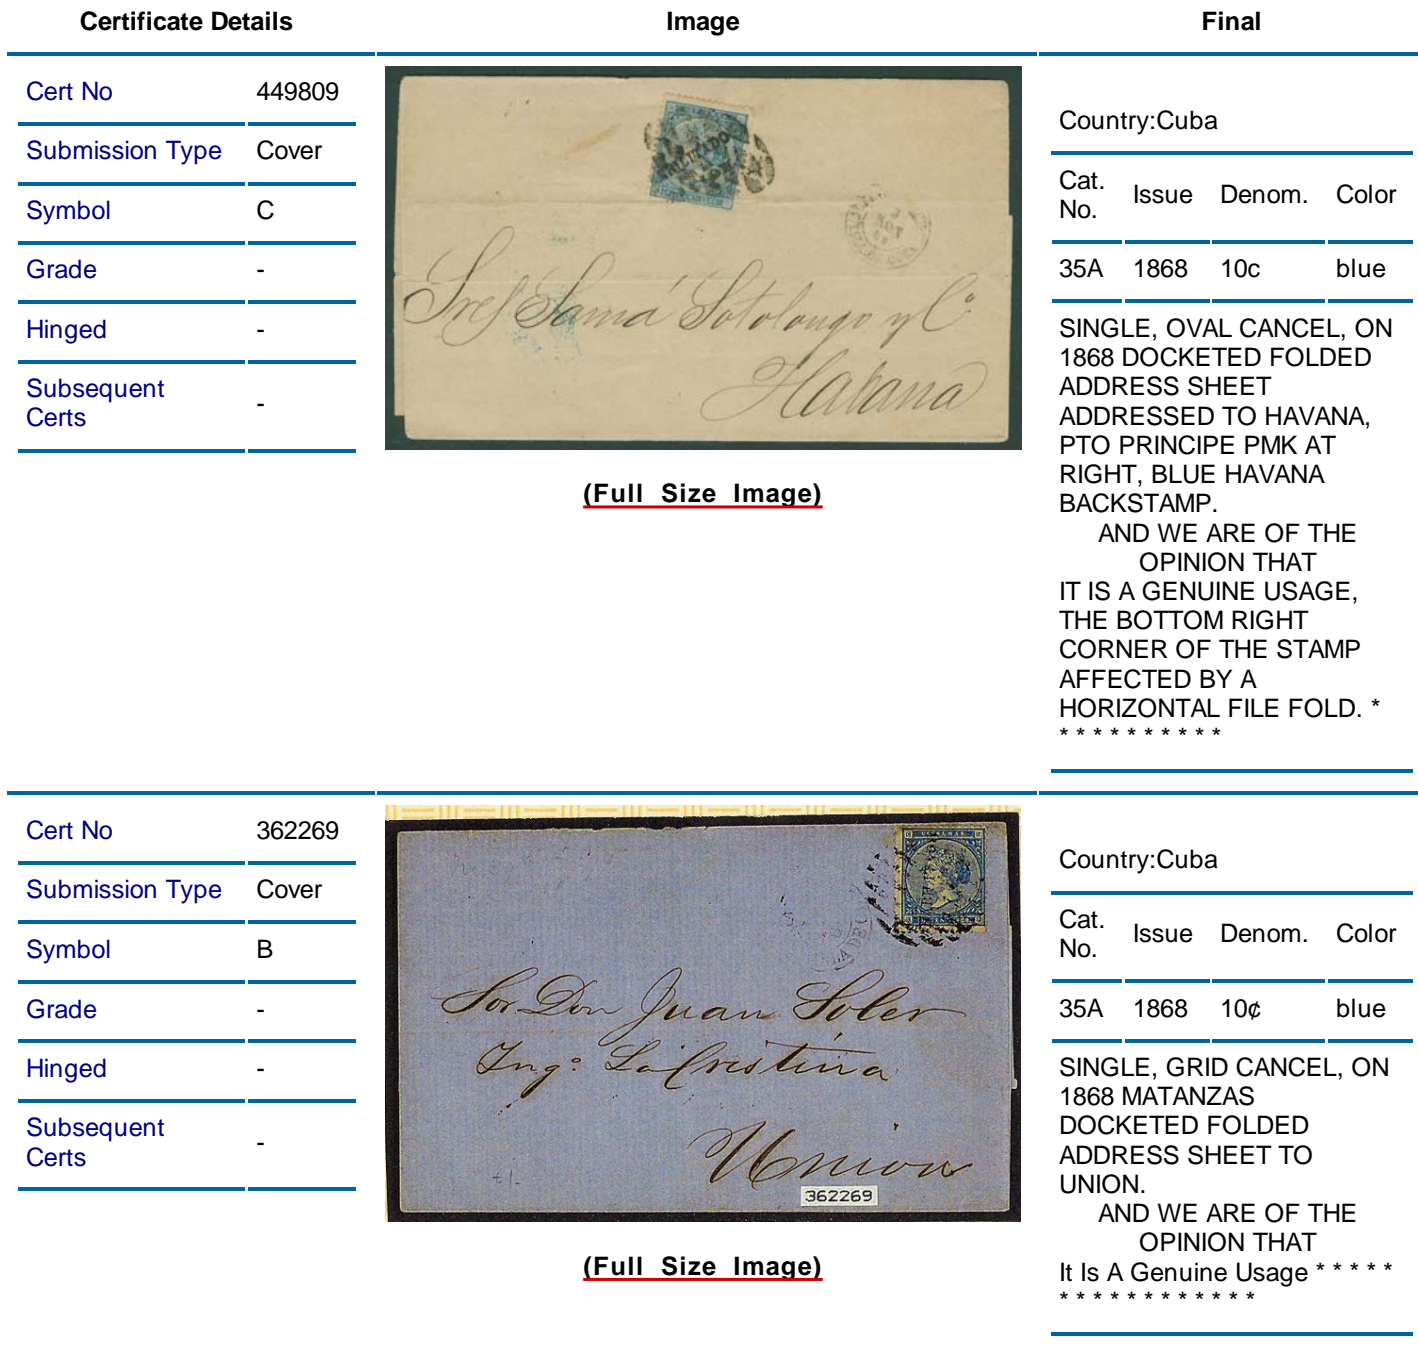 Certificate Details Image Final
Cert No 449809
Submission Type Cover
Symbol C
Grade -
Hinged -
Subsequent Certs -
Sres Samá Sotolongo y Cª
Habana
(Full Size Image)
Country:Cuba
Cat. No. Issue Denom. Color
35A 1868 10c blue
SINGLE, OVAL CANCEL, ON
1868 DOCKETED FOLDED
ADDRESS SHEET
ADDRESSED TO HAVANA,
PTO PRINCIPE PMK AT
RIGHT, BLUE HAVANA
BACKSTAMP.
AND WE ARE OF THE
OPINION THAT
IT IS A GENUINE USAGE,
THE BOTTOM RIGHT
CORNER OF THE STAMP
AFFECTED BY A
HORIZONTAL FILE FOLD. *
* * * * * * * * * *
Cert No 362269
Submission Type Cover
Symbol B
Grade -
Hinged -
Subsequent Certs -
ULTRAMAR
Sor Don Juan Soler
Ingº La Cristina
Union
362269
(Full Size Image)
Country:Cuba
Cat. No. Issue Denom. Color
35A 1868 10¢ blue
SINGLE, GRID CANCEL, ON
1868 MATANZAS
DOCKETED FOLDED
ADDRESS SHEET TO
UNION.
AND WE ARE OF THE
OPINION THAT
It Is A Genuine Usage * * * * *
* * * * * * * * * * * *